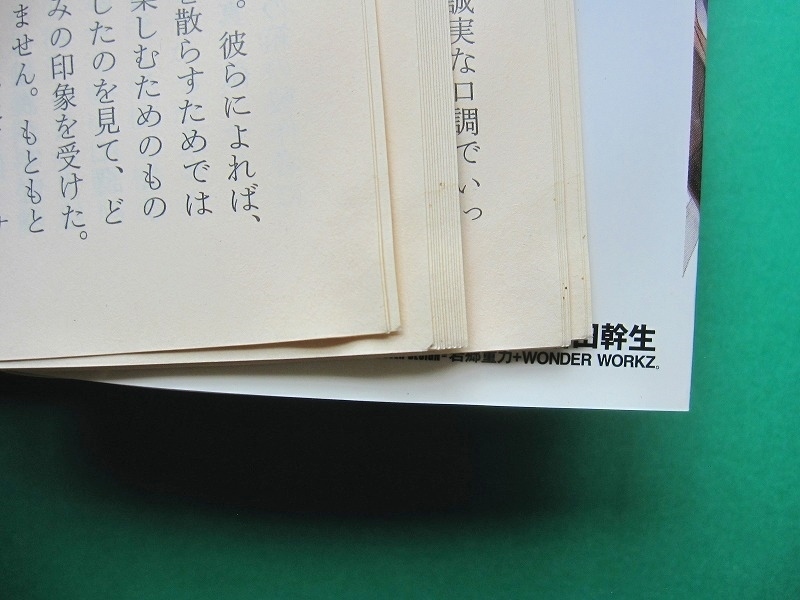 誠実な口調でいっ
。彼らによれば、
を散らすためでは
楽しむためのもの
したのを見て、ど
みの印象を受けた。
ません。もともと
田幹生
岩郷重力+WONDER WORKZ。